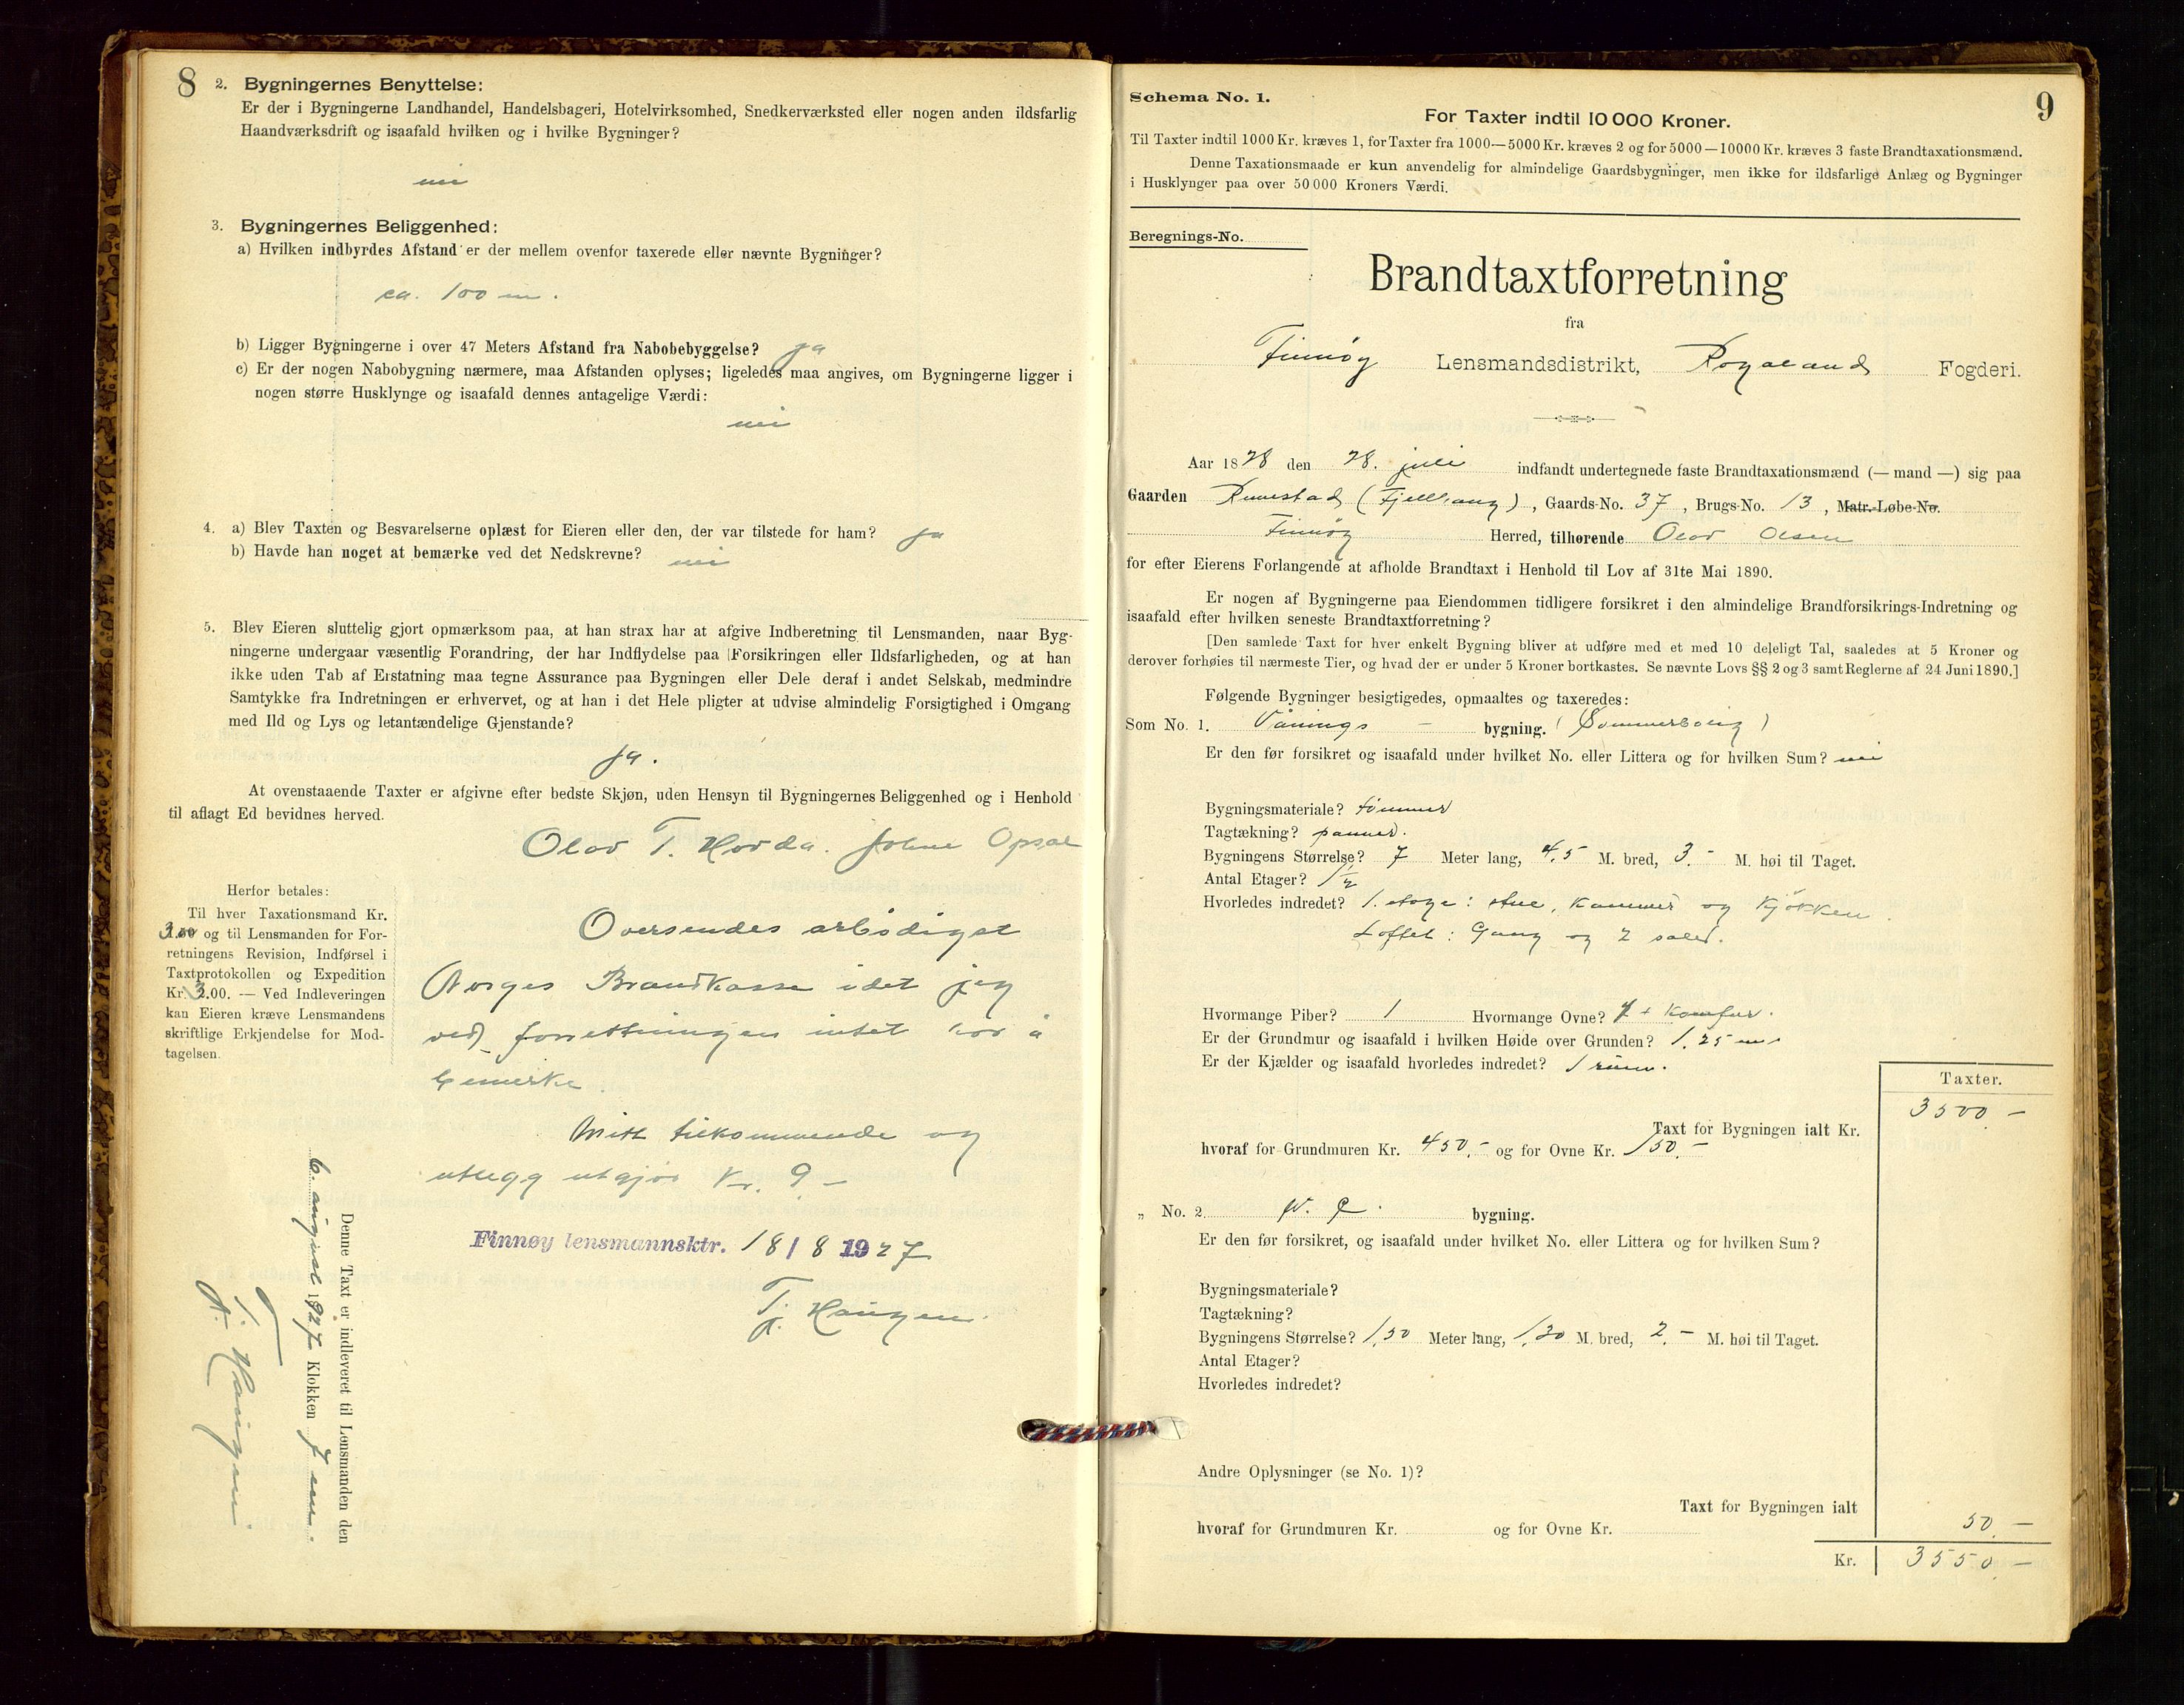 8
2. Bygningernes Benyttelse:
Er der i Bygningerne Landhandel, Handelsbageri, Hotelvirksomhed, Snedkerværksted eller nogen anden ildsfarlig
Haandværksdrift og isaafald hvilken og i hvilke Bygninger?
nei
3. Bygningernes Beliggenhed:
a) Hvilken indbyrdes Afstand er der mellem ovenfor taxerede eller nævnte Bygninger?
ca. 100 m.
b) Ligger Bygningerne i over 47 Meters Afstand fra Nabobebyggelse? ja
c) Er der nogen Nabobygning nærmere, maa Afstanden oplyses; ligeledes maa angives, om Bygningerne ligger i
nogen større Husklynge og isaafald dennes antagelige Værdi:
nei
4. a) Blev Taxten og Besvarelserne oplæst for Eieren eller den, der var tilstede for ham? ja
b) Havde han noget at bemærke ved det Nedskrevne? nei
5. Blev Eieren sluttelig gjort opmærksom paa, at han strax har at afgive Indberetning til Lensmanden, naar Byg-
ningerne undergaar væsentlig Forandring, der har Indflydelse paa Forsikringen eller Ildsfarligheden, og at han
ikke uden Tab af Erstatning maa tegne Assurance paa Bygningen eller Dele deraf i andet Selskab, medmindre
Samtykke fra Indretningen er erhvervet, og at han i det Hele pligter at udvise almindelig Forsigtighed i Omgang
med Ild og Lys og letantændelige Gjenstande?
ja.
At ovenstaaende Taxter er afgivne efter bedste Skjøn, uden Hensyn til Bygningernes Beliggenhed og i Henhold
til aflagt Ed bevidnes herved.
Olav T. Horda. Johne Opsal
Herfor betales:
Til hver Taxationsmand Kr.
3.00 og til Lensmanden for For-
retningens Revision, Indførsel i
Taxtprotokollen og Expedition
Kr. 3.00. — Ved Indleveringen
kan Eieren kræve Lensmandens
skriftlige Erkjendelse for Mod-
tagelsen.
Oversendes arbødigst
Norges Brandkasse idet jeg
ved forrettningen intet har å
bemerke.
Mitt tilkommende og
utlegg utgjør kr. 9 –
Finnøy lensmannsktr. 18/8 1927
Tj. Haugen.
Denne Taxt er indleveret til Lensmanden den
6. august 1927 Klokken 7 em.
Tj. Haugen.
9
Schema No. 1.
For Taxter indtil 10 000 Kroner.
Til Taxter indtil 1000 Kr. kræves 1, for Taxter fra 1000—5000 Kr. kræves 2 og for 5000—10000 Kr. kræves 3 faste Brandtaxationsmænd.
Denne Taxationsmaade er kun anvendelig for almindelige Gaardsbygninger, men ikke for ildsfarlige Anlæg og Bygninger
i Husklynger paa over 50 000 Kroners Værdi.
Beregnings-No.
Brandtaxtforretning
fra
Finnøy Lensmandsdistrikt, Rogaland Fogderi.
Aar 1828 den 28. juli indfandt undertegnede faste Brandtaxationsmænd (— mand —) sig paa
Gaarden Reinestad (Fjellhaug), Gaards-No. 37, Brugs-No. 13, Matr.-Løbe-No.
Finnøy Herred, tilhørende Olav Olsen
for efter Eierens Forlangende at afholde Brandtaxt i Henhold til Lov af 31te Mai 1890.
Er nogen af Bygningerne paa Eiendommen tidligere forsikret i den almindelige Brandforsikrings-Indretning og
isaafald efter hvilken seneste Brandtaxtforretning?
[Den samlede Taxt for hver enkelt Bygning bliver at udføre med et med 10 deleligt Tal, saaledes at 5 Kroner og
derover forhøies til nærmeste Tier, og hvad der er under 5 Kroner bortkastes. Se nævnte Lovs §§ 2 og 3 samt Reglerne af 24 Juni 1890.]
Følgende Bygninger besigtigedes, opmaaltes og taxeredes:
Som No. 1. Vånings – bygning. (Sommerbolig)
Er den før forsikret og isaafald under hvilket No. eller Littera og for hvilken Sum? nei
Bygningsmateriale? tømmer
Tagtækning? panner.
Bygningens Størrelse? 7 Meter lang, 4,5 M. bred, 3.– M. høi til Taget.
Antal Etager? 1 1/2
Hvorledes indredet? 1. etage: stue, kammer og kjøkken.
Loftet: Gang og 2 saler.
Hvormange Piber? 1 Hvormange Ovne? 1 + komfur.
Er der Grundmur og isaafald i hvilken Høide over Grunden? 1,25 m.
Er der Kjælder og isaafald hvorledes indredet? 1 rum.
Taxter.
3500 –
Taxt for Bygningen ialt Kr.
hvoraf for Grundmuren Kr. 450,– og for Ovne Kr. 150.–
„ No. 2. W. C. bygning.
Er den før forsikret, og isaafald under hvilket No. eller Littera og for hvilken Sum?
Bygningsmateriale?
Tagtækning?
Bygningens Størrelse? 1,50 Meter lang, 1,30 M. bred, 2.– M. høi til Taget.
Antal Etager?
Hvorledes indredet?
Andre Oplysninger (se No. 1)?
Taxt for Bygningen ialt
hvoraf for Grundmuren Kr. og for Ovne Kr.
50.–
Kr. 3550.–